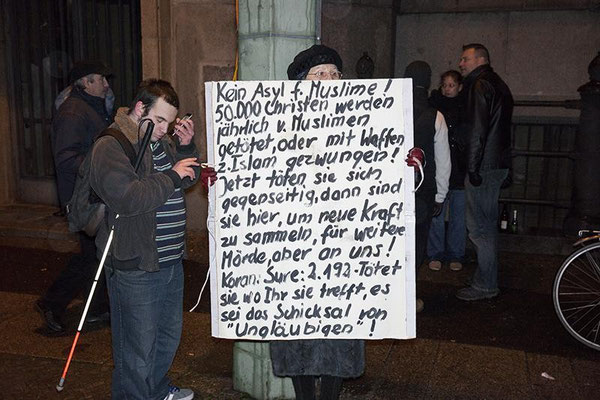 Kein Asyl f. Muslime!
50.000 Christen werden
jährlich v. Muslimen
getötet, oder mit Waffen
z. Islam gezwungen!
Jetzt töten sie sich
gegenseitig, dann sind
sie hier, um neue Kraft
zu sammeln, für weitere
Morde, aber an uns!
Koran: Sure: 2.192-Tötet
sie wo Ihr sie trefft, es
sei das Schicksal von
"Ungläubigen"!